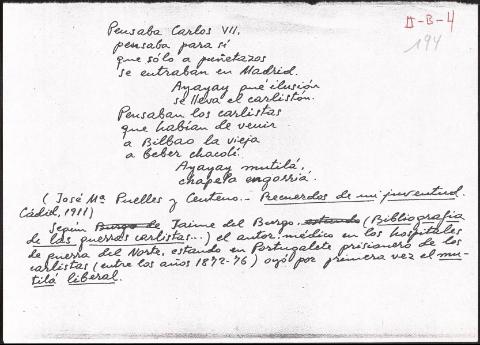 II-B-4
194
Pensaba Carlos VII,
pensaba para sí
que sólo a puñetazos
se entraban en Madrid.
Ayayay qué ilusión
se lleva el carlistón.
Pensaban los carlistas
que habían de venir
a Bilbao la vieja
a beber chacolí.
Ayayay mutilá,
chapela engorriá.
(José Mª Puelles y Centeno.- Recuerdos de mi juventud.
Cádid, 1911)
Según Burgo de Jaime del Burgo, (Bibliografía
de las guerras carlistas...) el autor, médico en los hospitales
de guerra del Norte, estando en Portugalete prisionero de los
carlistas (entre los años 1872-76) oyó por primera vez el mu-
tilá liberal.